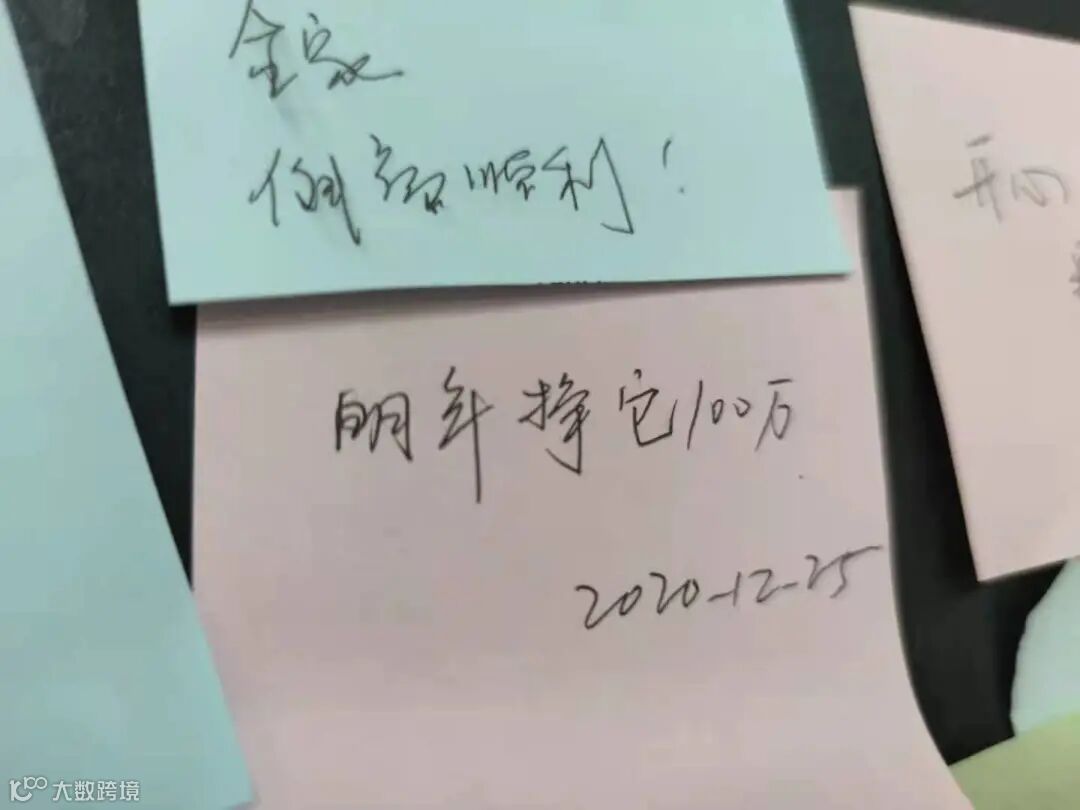 全家
顺利！
开心
明年挣它100万
2020-12-25
大数跨境